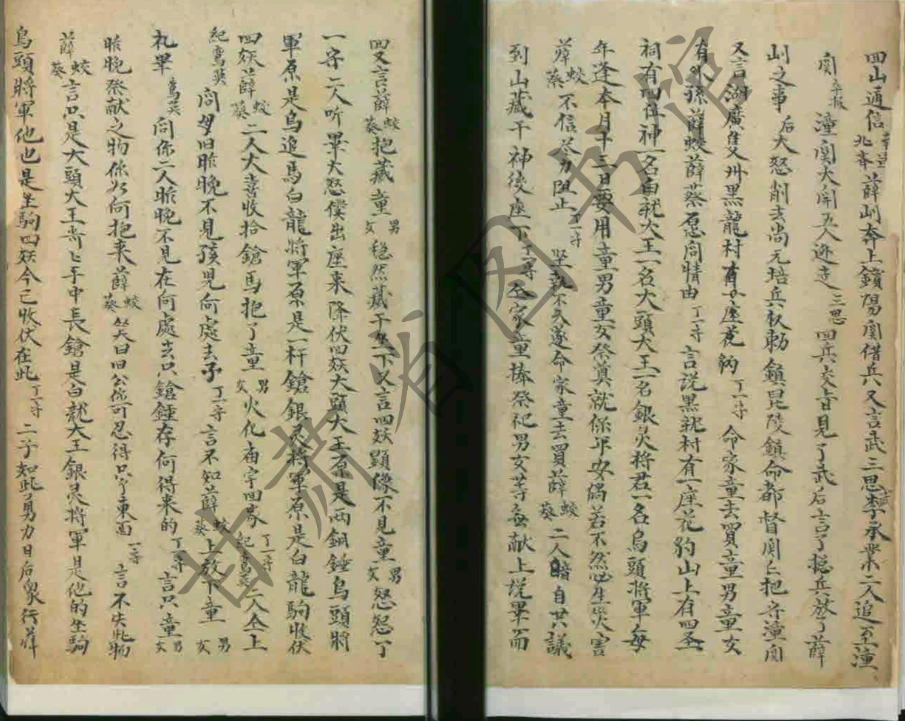 四山通信 薛剛奔上鎖陽関借兵又言武三思李承業二人追至潼
関 潼関大開五人逃走三思 回兵交旨見了武后言了総兵放了薛
剛之事后大怒削去尚元培兵权勅鎮昆陵鎮命都督関仁把守潼関
又言湖廣隻州黒龍村有 座花 鈉丁一守 命家童去買童男童女
有外孫薛蛟薛葵 问情由丁一守 言説黒龍村有一座花豹山上有四圣
祠有四位神一名白龍大王一名大頭大王一名銀灵将君一名烏頭将軍每
年逢本月十三日要用童男童女祭奠就保平安倘若不然必生灾害
薛蛟葵不信尽力阻止丁一守 坚執不久遂命家童去買薛蛟葵二人暗自共議
到山藏于神後座下丁一守 令家童捧祭祀男女等每献上說畢而
四又言薛蛟葵抱藏童男女稳然藏于坐下又言四妖顕像不見童男女怒怒丁
一守二人听畢大怒僕出座来降伏四妖大頭大王原是两銅錘烏頭將
軍原是烏追馬白龍將軍原是一杆鎗銀灵將軍原是白龍駒收伏
四妖薛蛟葵二人大喜收拾鎗馬抱了童男女火化庙宇回家丁一守紀鸞英二人仝上
紀鸞英问 旧昧晚不見孩兒何處去了丁一守 言不知薛蛟葵上放下童男女
礼畢鸞英问你二人昧晚不見在何處去只鎗錘存何得来的丁一守 言只童男女
昧晚祭献之物你从何抱来薛蛟葵笑曰旧公你可忍得只个東西一守 言不失此物
薛蛟葵言只是大頭大王 手中長鎗是白龍大王銀灵将軍是他的坐駒
烏頭將軍他也是坐駒四妖今已收伏在此丁一守 二子如此勇力日后衆行
甘肃省图书馆